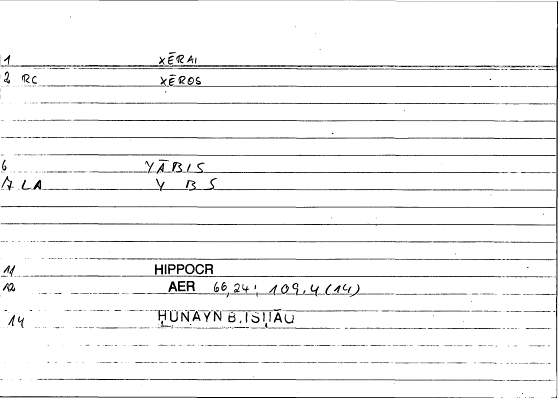 1 XĒRAI
2 RC XĒROS
6 YĀBIS
7 LA Y B S
11 HIPPOCR
12 AER 66,24; 109,4 (14)
14 ḤUNAYN B. ISḤĀQ